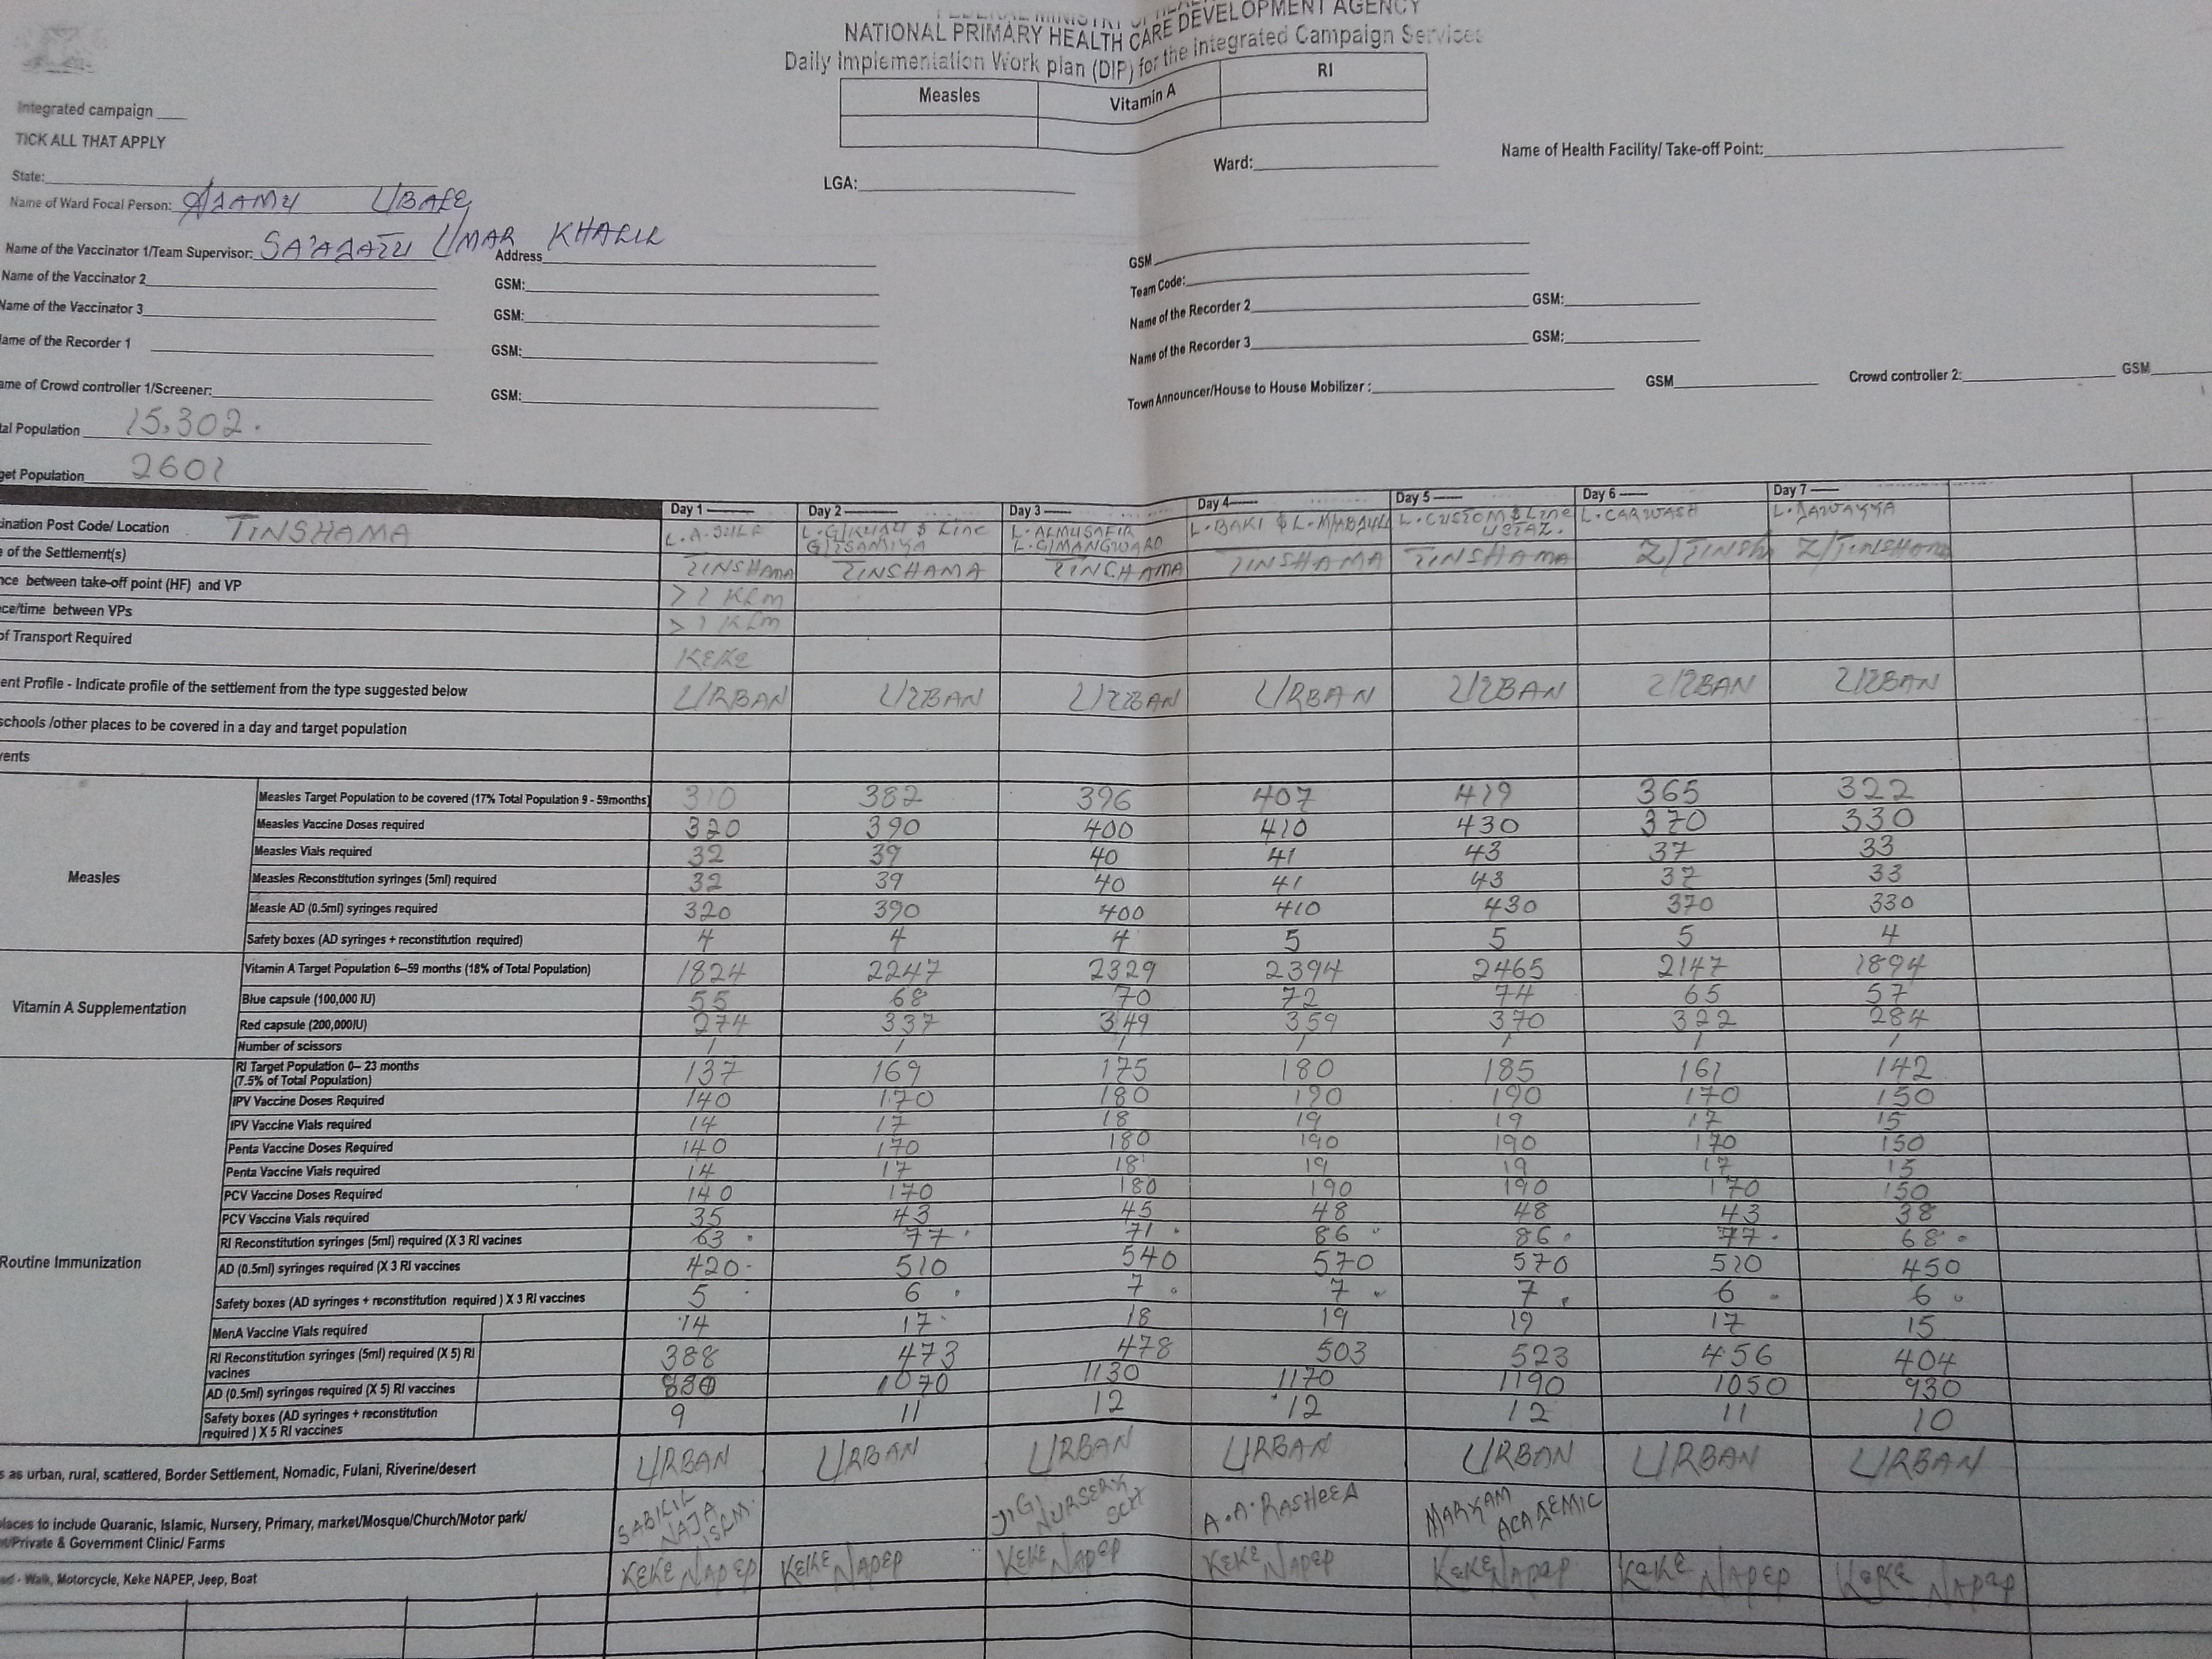 FEDERAL MINISTRY OF
NATIONAL PRIMARY HEALTH CARE DEVELOPMENT AGENCY
Daily Implementation Work plan (DIP) for the Integrated Campaign Services
Measles Vitamin A RI
Integrated campaign
TICK ALL THAT APPLY
State: LGA: Ward: Name of Health Facility/ Take-off Point:
Name of Ward Focal Person: ADAMU UBALE
Name of the Vaccinator 1/Team Supervisor: SA'ADATU UMAR KHALIL Address GSM
Name of the Vaccinator 2 GSM: Team Code:
Name of the Vaccinator 3 GSM: Name of the Recorder 2 GSM:
ame of the Recorder 1 GSM: Name of the Recorder 3 GSM:
ame of Crowd controller 1/Screener: GSM: Town Announcer/House to House Mobilizer : GSM Crowd controller 2: GSM
tal Population 15,302.
get Population 2601
Day 1 Day 2 Day 3 Day 4 Day 5 Day 6 Day 7
ination Post Code/ Location TINSHAMA L.A.SULE L.G/KUAU & Line G/TSAMIYA L.ALMUSAFIR L.G/MANGWARO L.BAKI & L. L.CUSTOM & Line USTAZ. L.CARWASH L.DAWAYYA
e of the Settlement(s) TINSHAMA TINSHAMA TINSHAMA TINSHAMA TINSHAMA Z/TINSHA Z/TINSHAMA
nce between take-off point (HF) and VP >1 KLM
ce/time between VPs >1 KLM
of Transport Required KEKE
ent Profile - Indicate profile of the settlement from the type suggested below URBAN URBAN URBAN URBAN URBAN URBAN URBAN
schools /other places to be covered in a day and target population
vents
Measles
Measles Target Population to be covered (17% Total Population 9 - 59months) 310 382 396 407 419 365 322
Measles Vaccine Doses required 320 390 400 410 430 370 330
Measles Vials required 32 39 40 41 43 37 33
Measles Reconstitution syringes (5ml) required 32 39 40 41 43 37 33
Measle AD (0.5ml) syringes required 320 390 400 410 430 370 330
Safety boxes (AD syringes + reconstitution required) 4 4 4 5 5 5 4
Vitamin A Supplementation
Vitamin A Target Population 6–59 months (18% of Total Population) 1824 2247 2329 2394 2465 2147 1894
Blue capsule (100,000 IU) 55 68 70 72 74 65 57
Red capsule (200,000IU) 274 337 349 359 370 322 284
Number of scissors 1 1 1 1 1 1 1
Routine Immunization
RI Target Population 0– 23 months
(7.5% of Total Population) 137 169 175 180 185 161 142
IPV Vaccine Doses Required 140 170 180 190 190 170 150
IPV Vaccine Vials required 14 17 18 19 19 17 15
Penta Vaccine Doses Required 140 170 180 190 190 170 150
Penta Vaccine Vials required 14 17 18 19 19 17 15
PCV Vaccine Doses Required 140 170 180 190 190 170 150
PCV Vaccine Vials required 35 43 45 48 48 43 38
RI Reconstitution syringes (5ml) required (X 3 RI vacines 63 77 71 86 86 77 68
AD (0.5ml) syringes required (X 3 RI vaccines 420 510 540 570 570 510 450
Safety boxes (AD syringes + reconstitution required ) X 3 RI vaccines 5 6 7 7 7 6 6
MenA Vaccine Vials required 14 17 18 19 19 17 15
RI Reconstitution syringes (5ml) required (X 5) RI
vacines 388 473 478 503 523 456 404
AD (0.5ml) syringes required (X 5) RI vaccines 1070 1130 1170 1190 1050 930
Safety boxes (AD syringes + reconstitution
required ) X 5 RI vaccines 9 11 12 12 12 11 10
s as urban, rural, scattered, Border Settlement, Nomadic, Fulani, Riverine/desert URBAN URBAN URBAN URBAN URBAN URBAN URBAN
laces to include Quaranic, Islamic, Nursery, Primary, market/Mosque/Church/Motor park/
t/Private & Government Clinic/ Farms SABILIL NAJA ISLM. NURSERY SCH A.A.RASHEED MARYAM ACADEMIC
ed - Walk, Motorcycle, Keke NAPEP, Jeep, Boat KEKE NAPEP KEKE NAPEP KEKE NAPEP KEKE NAPEP KEKE NAPEP KEKE NAPEP KEKE NAPEP